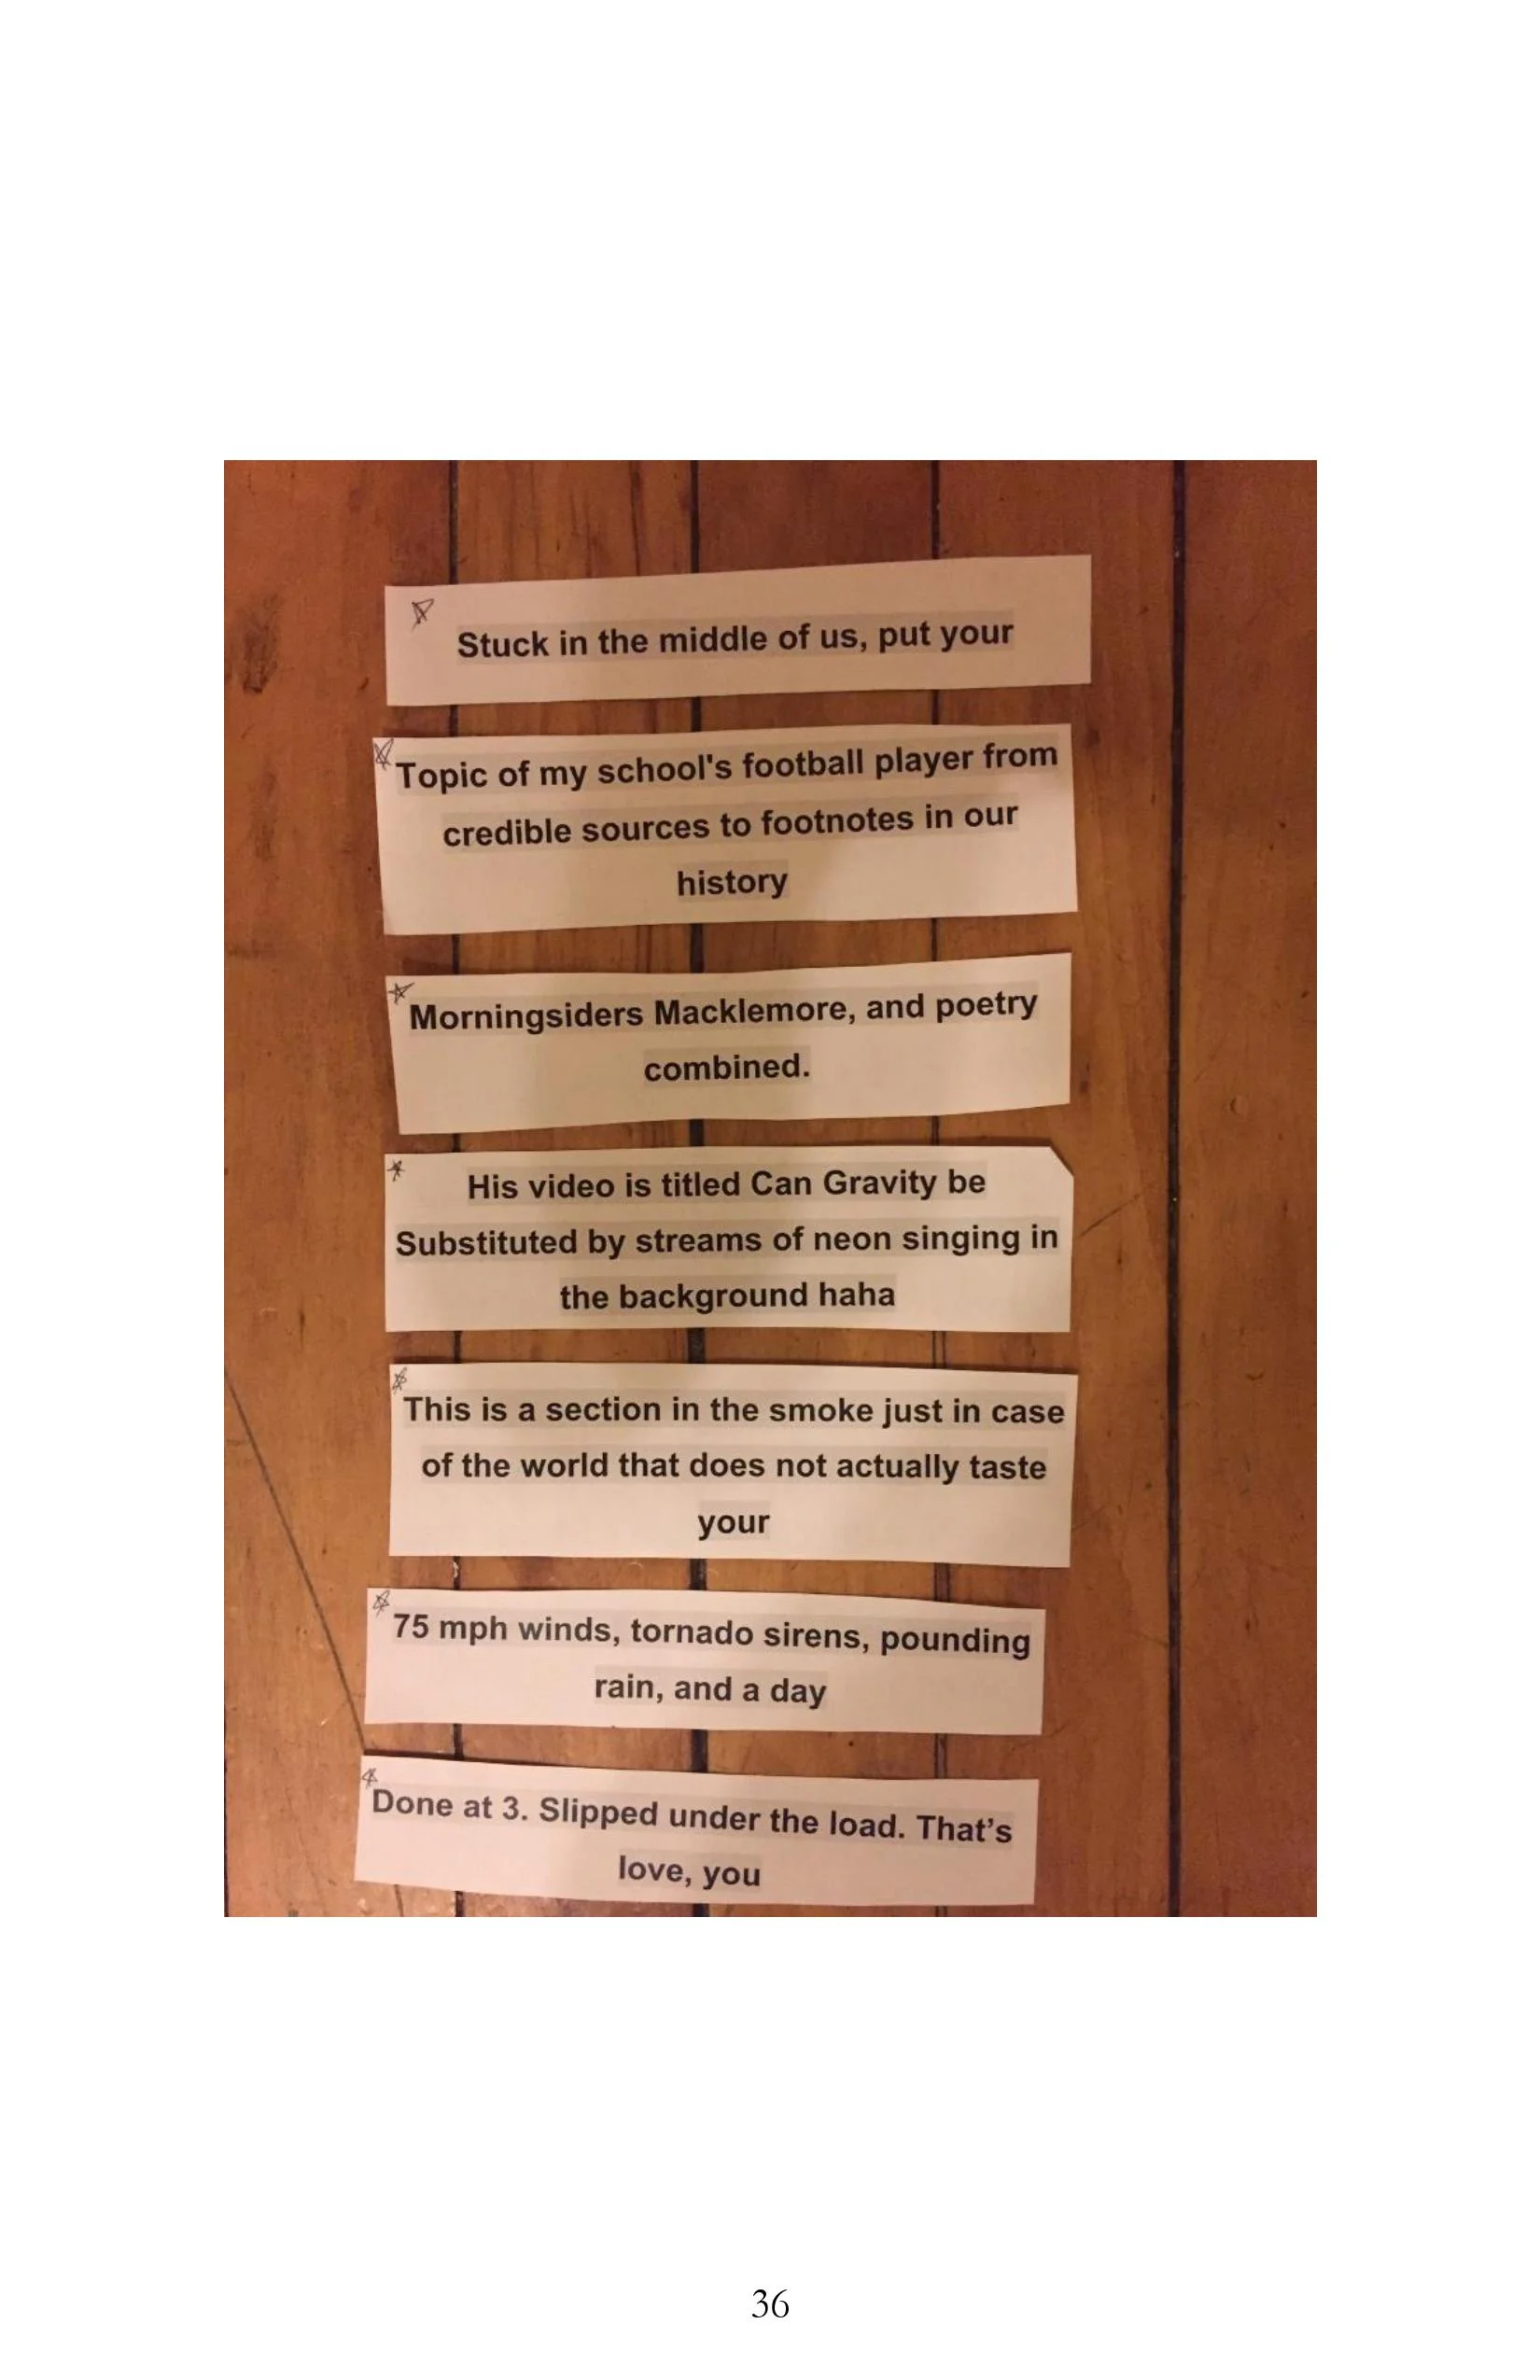 Stuck in the middle of us, put your
Topic of my school's football player from
credible sources to footnotes in our
history
Morningsiders Macklemore, and poetry
combined.
His video is titled Can Gravity be
Substituted by streams of neon singing in
the background haha
This is a section in the smoke just in case
of the world that does not actually taste
your
75 mph winds, tornado sirens, pounding
rain, and a day
Done at 3. Slipped under the load. That’s
love, you
36